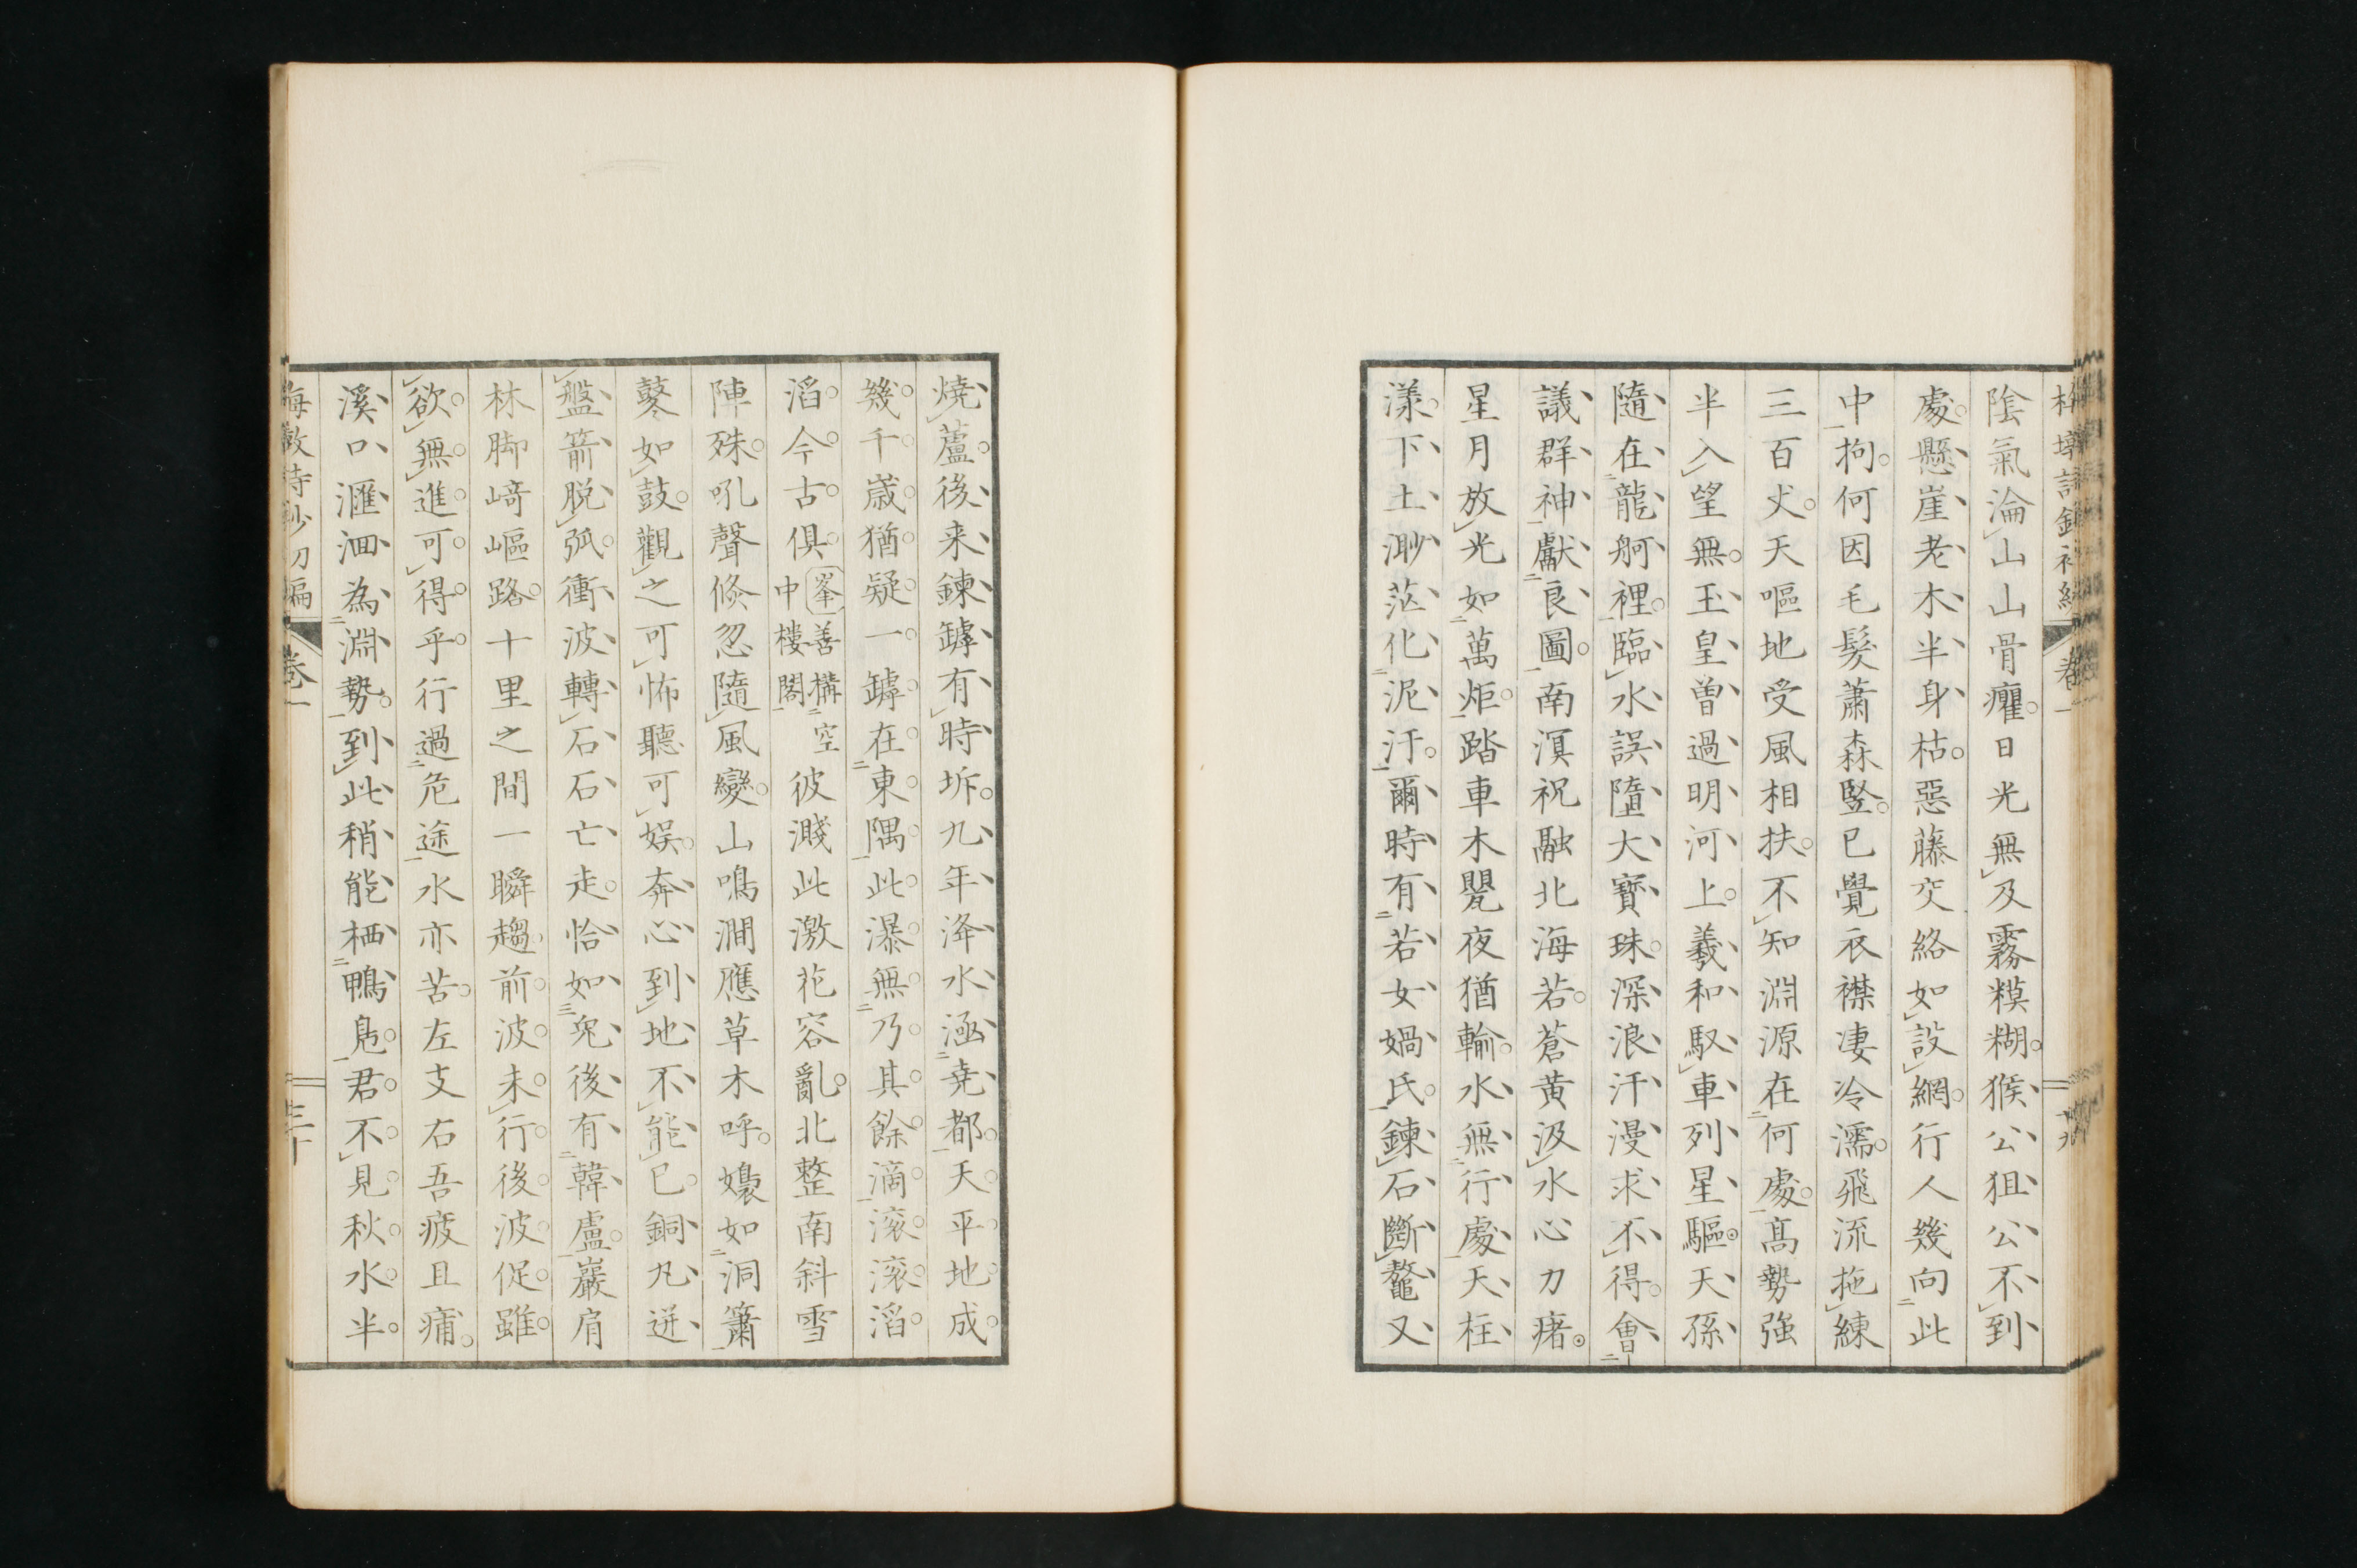 陰氣淪山山骨癯日光無及霧糢糊猴公狙公不到
處懸崖老木半身枯惡藤交絡如設網行人幾向此
中拘何因毛髮蕭森竪已覺衣襟凄冷濡飛流拖練
三百丈天嘔地受風相扶不知淵源在何處高勢強
半入望無玉皇曽過明河上羲和馭車列星驅天孫
隨在龍舸裡臨水誤墮大寶珠深浪汗漫求不得會
議群神獻良圖南溟祝融北海若蒼黄汲水心力瘏
星月放光如萬炬踏車木甖夜猶輸水無行處天柱
漾下土渺茫化泥汙爾時有若女媧氏鍊石斷鼇又
卷一
燒蘆後来鍊罅有時坼九年洚水涵尭都天平地成
幾千歳猶疑一罅在東隅此瀑無乃其餘滴滚滚滔
滔今古俱峯善構空中樓閣彼濺此激花容亂北整南斜雪
陣殊吼聲倏忽隨風變山鳴澗應草木呼嫋如洞簫
鼕如鼓觀之可怖聽可娯奔心到地不能已銅丸迸
盤箭脱弧衝波轉石石亡走恰如兔後有韓盧巖肩
林脚﨑嶇路十里之間一瞬趨前波未行後波促雖
欲無進可得乎行過危途水亦苦左支右吾疲且痡
溪口滙洄為淵勢到此稍能栖鴨鳧君不見秋水半
卷一
三十